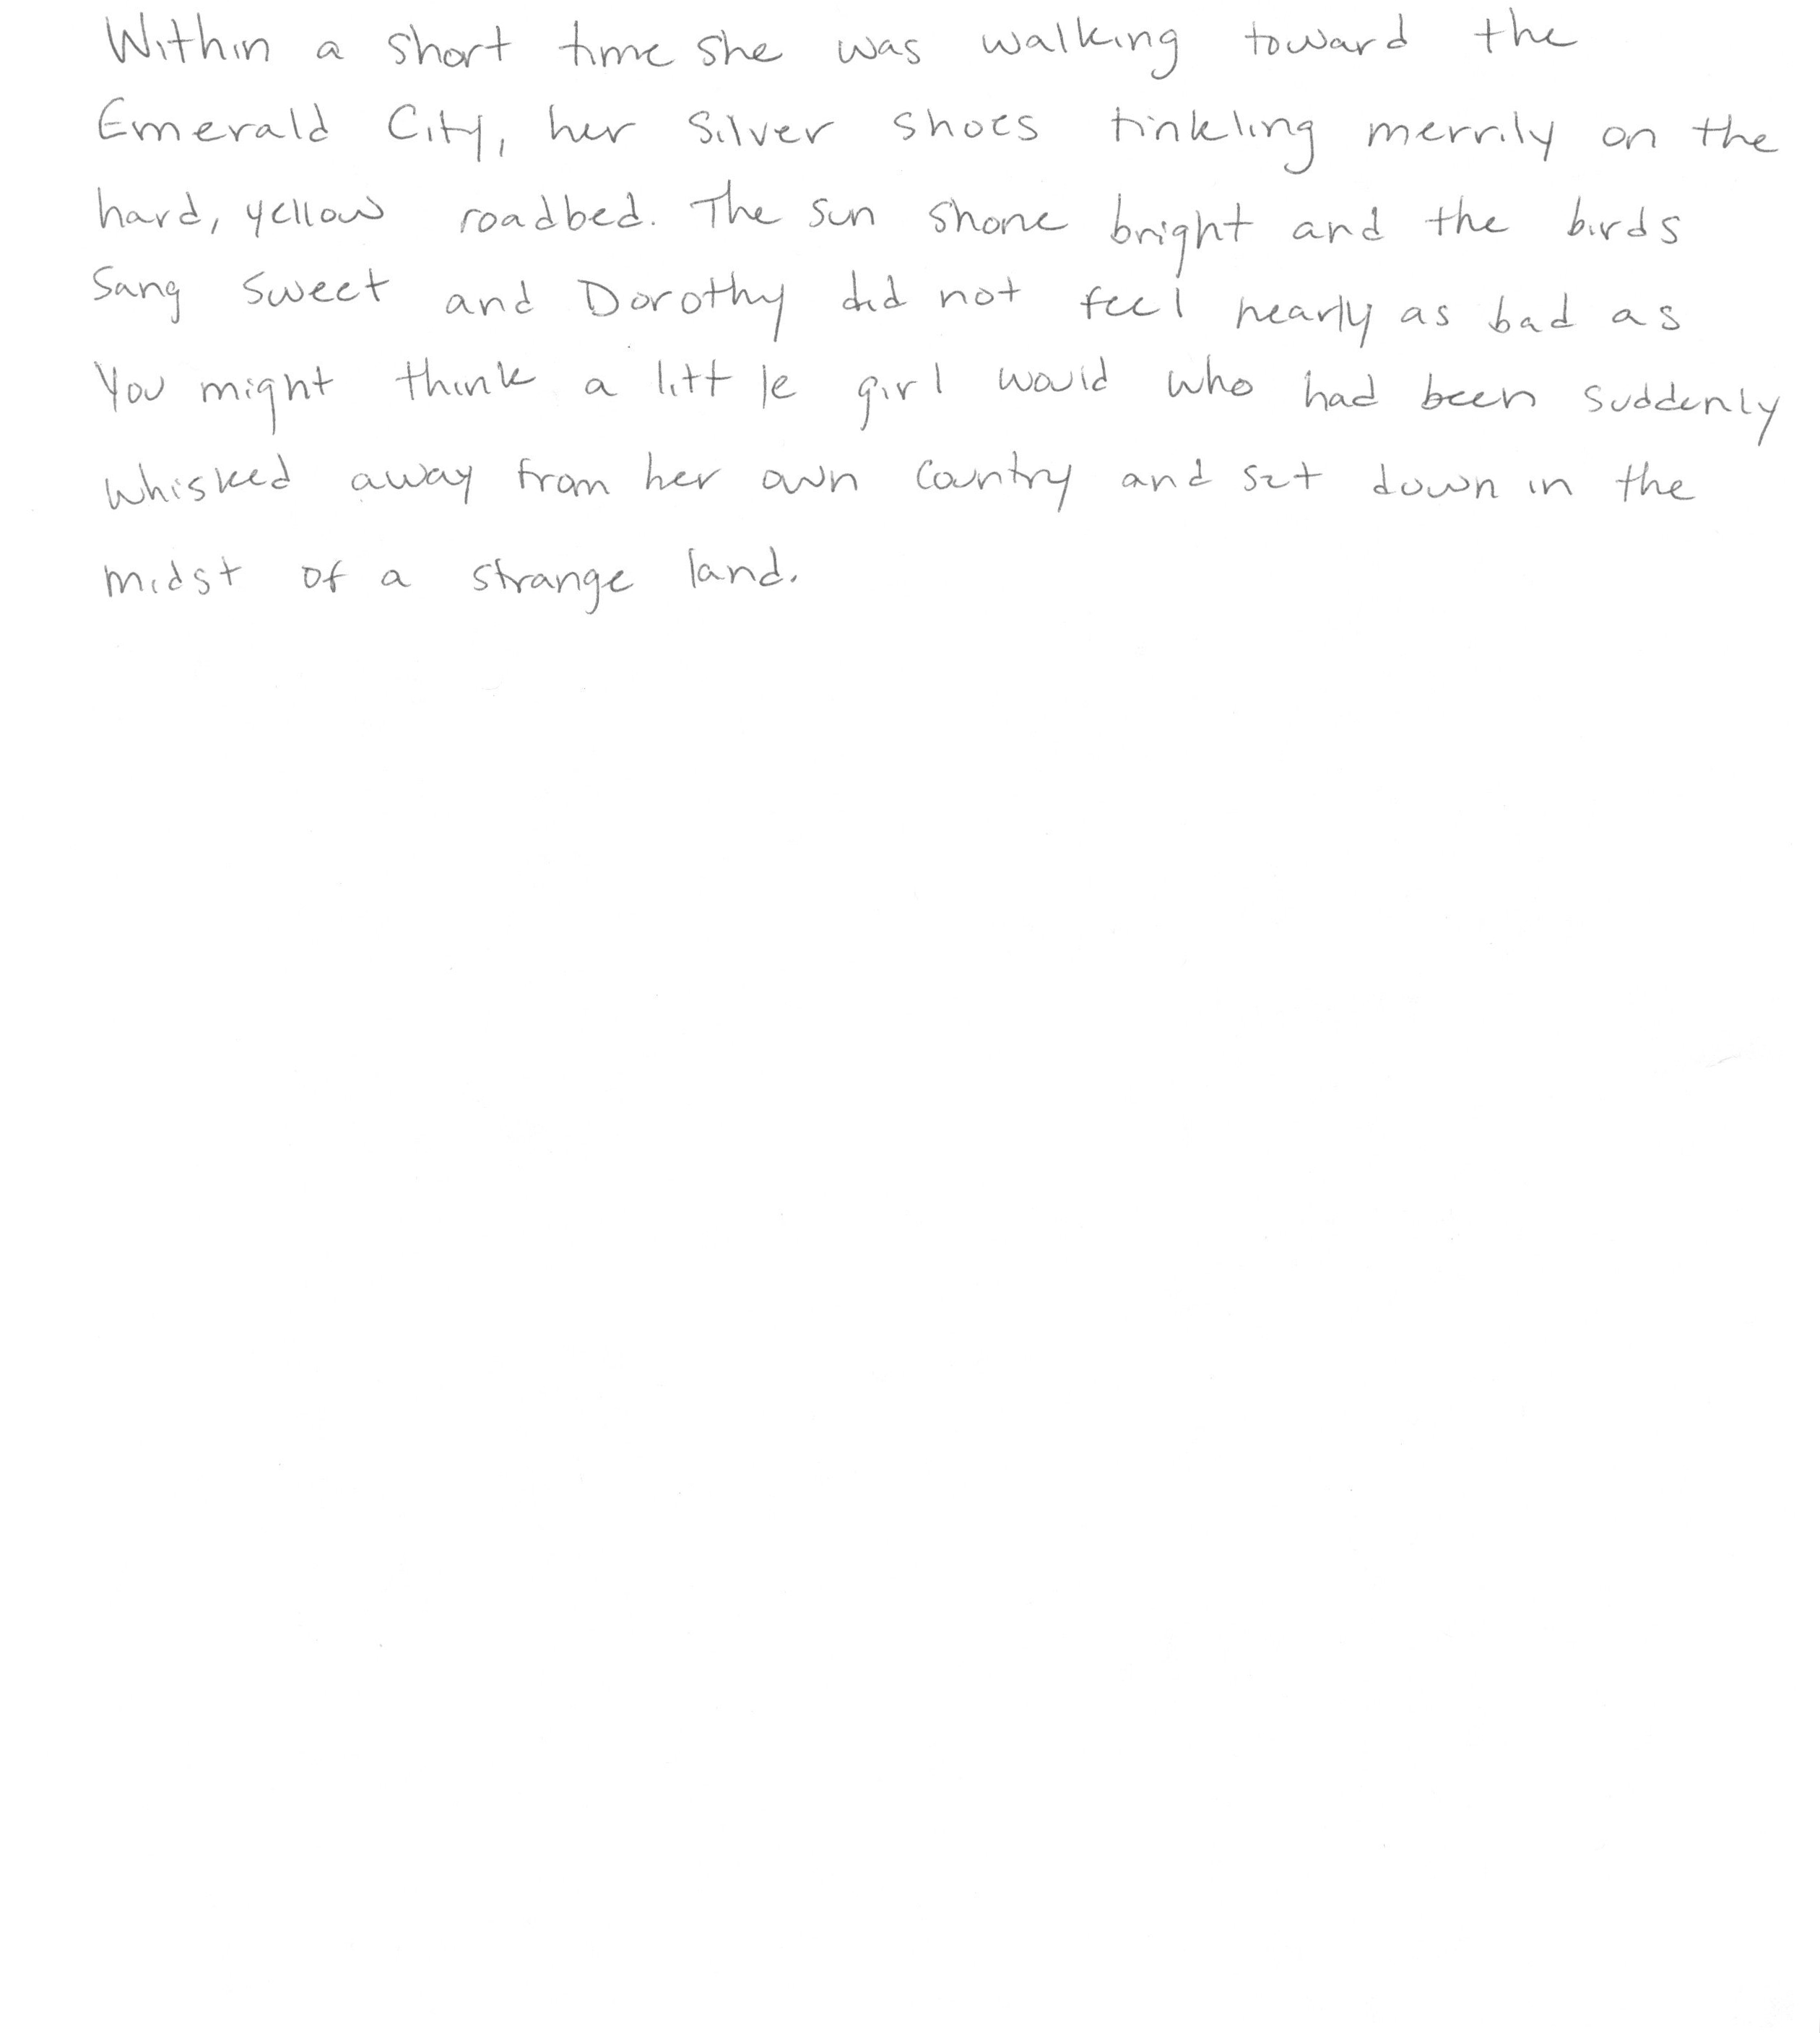 Within a short time she was walking toward the
Emerald City, her silver shoes tinkling merrily on the
hard, yellow roadbed. The sun shone bright and the birds
sang sweet and Dorothy did not feel nearly as bad as
you might think a little girl would who had been suddenly
whisked away from her own country and set down in the
midst of a strange land.